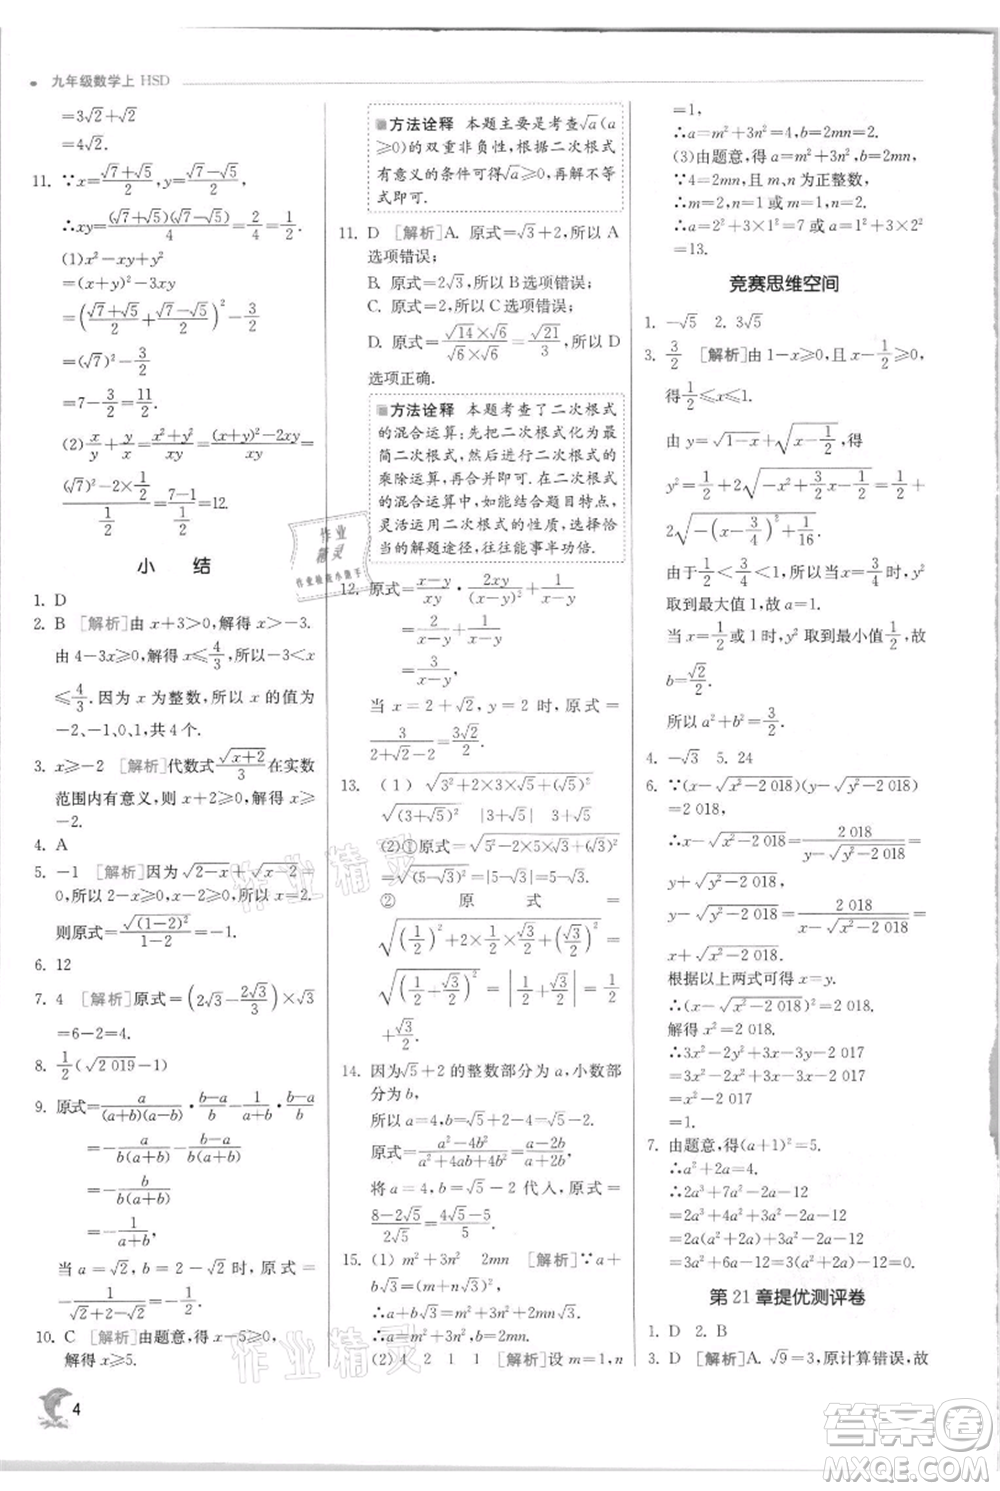 九年级数学上 HSD
=3√2+√2
=4√2.
11. ∵x=(√7+√5)/2,y=(√7-√5)/2,
∴xy=(√7+√5)(√7-√5)/4=2/4=1/2.
(1)x²-xy+y²
=(x+y)²-3xy
=((√7+√5)/2+(√7-√5)/2)²-3/2
=(√7)²-3/2
=7-3/2=11/2.
(2)x/y+y/x=(x²+y²)/xy=((x+y)²-2xy)/xy=
((√7)²-2×1/2)/(1/2)=(7-1)/(1/2)=12.
小 结
1. D
2. B [解析]由 x+3>0,解得 x>-3.
由 4-3x≥0,解得 x≤4/3,所以-3<x
≤4/3.因为 x 为整数,所以 x 的值为
-2、-1、0、1,共 4 个.
3. x≥-2 [解析]代数式√(x+2)/3在实数
范围内有意义,则 x+2≥0,解得 x≥
-2.
4. A
5. -1 [解析]因为√(2-x)+√(x-2)=
0,所以 2-x≥0,x-2≥0,解得 x=2.
则原式=√((1-2)²)/(1-2)=-1.
6. 12
7. 4 [解析]原式=(2√3-2√3/3)×√3
=6-2=4.
8. 1/2(√2 019-1)
9. 原式=a/((a+b)(a-b))·(b-a)/b+1/(a+b)·(b-a)/b
=-a/(b(a+b))-(b-a)/(b(a+b))
=-b/(b(a+b))
=-1/(a+b).
当 a=√2,b=2-√2 时,原式=
-1/(√2+2-√2)=-1/2.
10. C [解析]由题意,得 x-5≥0,
解得 x≥5.
方法诠释 本题主要是考查√a(a
≥0)的双重非负性,根据二次根式
有意义的条件可得√a≥0,再解不等
式即可.
11. D [解析]A. 原式=√3+2,所以 A
选项错误;
B. 原式=2√3,所以 B 选项错误;
C. 原式=2,所以 C 选项错误;
D. 原式=√14×√6/(√6×√6)=√21/3,所以 D
选项正确.
方法诠释 本题考查了二次根式
的混合运算:先把二次根式化为最
简二次根式,然后进行二次根式的
乘除运算,再合并即可.在二次根式
的混合运算中,如能结合题目特点,
灵活运用二次根式的性质,选择恰
当的解题途径,往往能事半功倍.
12. 原式=(x-y)/xy·2xy/(x-y)²+1/(x-y)
=2/(x-y)+1/(x-y)
=3/(x-y).
当 x=2+√2,y=2 时,原式=
3/(2+√2-2)=3√2/2.
13. (1) √(3²+2×3×√5+(√5)²)
√((3+√5)²) |3+√5| 3+√5
(2)①原式=√(5-2√5×2+2²)
=√((√5-2)²)=|√5-2|=√5-2.
② 原 式 =
√((1/2)²+2×1/2×√3/2+(√3/2)²)
=√((1/2+√3/2)²)=|1/2+√3/2|=1/2
+√3/2.
14. 因为√5+2 的整数部分为 a,小数部
分为 b,
所以 a=4,b=√5+2-4=√5-2.
原式=(a²-4b²)/(a²+4ab+4b²)=(a-2b)/(a+2b).
将 a=4,b=√5-2 代入,原式=
(8-2√5)/(2√5)=(4√5-5)/5.
15. (1) m²+3n² 2mn [解析]∵a+
b√3=(m+n√3)²,
∴a+b√3=m²+3n²+2mn√3,
∴a=m²+3n²,b=2mn.
(2) 4 2 1 1 [解析]设 m=1,n
=1,
∴a=m²+3n²=4,b=2mn=2.
(3)由题意,得 a=m²+3n²,b=2mn.
∵4=2mn,且 m、n 为正整数,
∴m=2,n=1 或 m=1,n=2,
∴a=2²+3×1²=7 或 a=1²+3×2²
=13.
竞赛思维空间
1. -√5 2. 3√5
3. 3/2 [解析]由 1-x≥0,且 x-1/2≥0,
得1/2≤x≤1.
由 y=√(1-x)+√(x-1/2),得
y²=1/2+2√(-x²+3/2x-1/2)=1/2+
2√(-(x-3/4)²+1/16).
由于1/2<3/4<1,所以当 x=3/4时,y²
取到最大值 1,故 a=1.
当 x=1/2或 1 时,y² 取到最小值1/2,故
b=√2/2.
所以 a²+b²=3/2.
4. -√3 5. 24
6. ∵(x-√(x²-2 018))(y-√(y²-2 018))
=2 018,
∴x-√(x²-2 018)=2 018/(y-√(y²-2 018))=
y+√(y²-2 018),
y-√(y²-2 018)=2 018/(x-√(x²-2 018))=
x+√(x²-2 018),
根据以上两式可得 x=y.
∴(x-√(x²-2 018))²=2 018.
解得 x²=2 018.
∴3x²-2y²+3x-3y-2 017
=3x²-2x²+3x-3x-2 017
=x²-2 017
=2 018-2 017
=1.
7. 由题意,得(a+1)²=5.
∴a²+2a=4.
∴2a³+7a²-2a-12
=2a³+4a²+3a²-2a-12
=2a(a²+2a)+3a²-2a-12
=3a²+6a-12=0.
第 21 章提优测评卷
1. D 2. B
3. D [解析]A. √9=3,原计算错误,故
4
作业精灵
作业检查小助手
作业精灵
作业精灵
答案圈
MXQE.COM